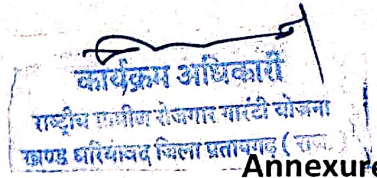 कार्यक्रम अधिकारी
राष्ट्रीय ग्रामीण रोजगार गारंटी योजना
खण्ड धरियावद जिला प्रतापगढ़ ( राज. )
Annexure